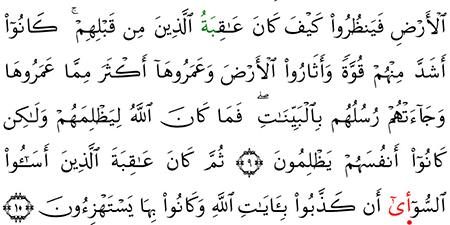 ٱلۡأَرۡضِ فَيَنظُرُواْ كَيۡفَ كَانَ عَٰقِبَةُ ٱلَّذِينَ مِن قَبۡلِهِمۡۚ كَانُوٓاْ
أَشَدَّ مِنۡهُمۡ قُوَّةٗ وَأَثَارُواْ ٱلۡأَرۡضَ وَعَمَرُوهَآ أَكۡثَرَ مِمَّا عَمَرُوهَا
وَجَآءَتۡهُمۡ رُسُلُهُم بِٱلۡبَيِّنَٰتِۖ فَمَا كَانَ ٱللَّهُ لِيَظۡلِمَهُمۡ وَلَٰكِن
كَانُوٓاْ أَنفُسَهُمۡ يَظۡلِمُونَ ﴿٩﴾ ثُمَّ كَانَ عَٰقِبَةَ ٱلَّذِينَ أَسَٰٓـُٔواْ
ٱلسُّوٓأَىٰٓ أَن كَذَّبُواْ بِـَٔايَٰتِ ٱللَّهِ وَكَانُواْ بِهَا يَسۡتَهۡزِءُونَ ﴿١٠﴾